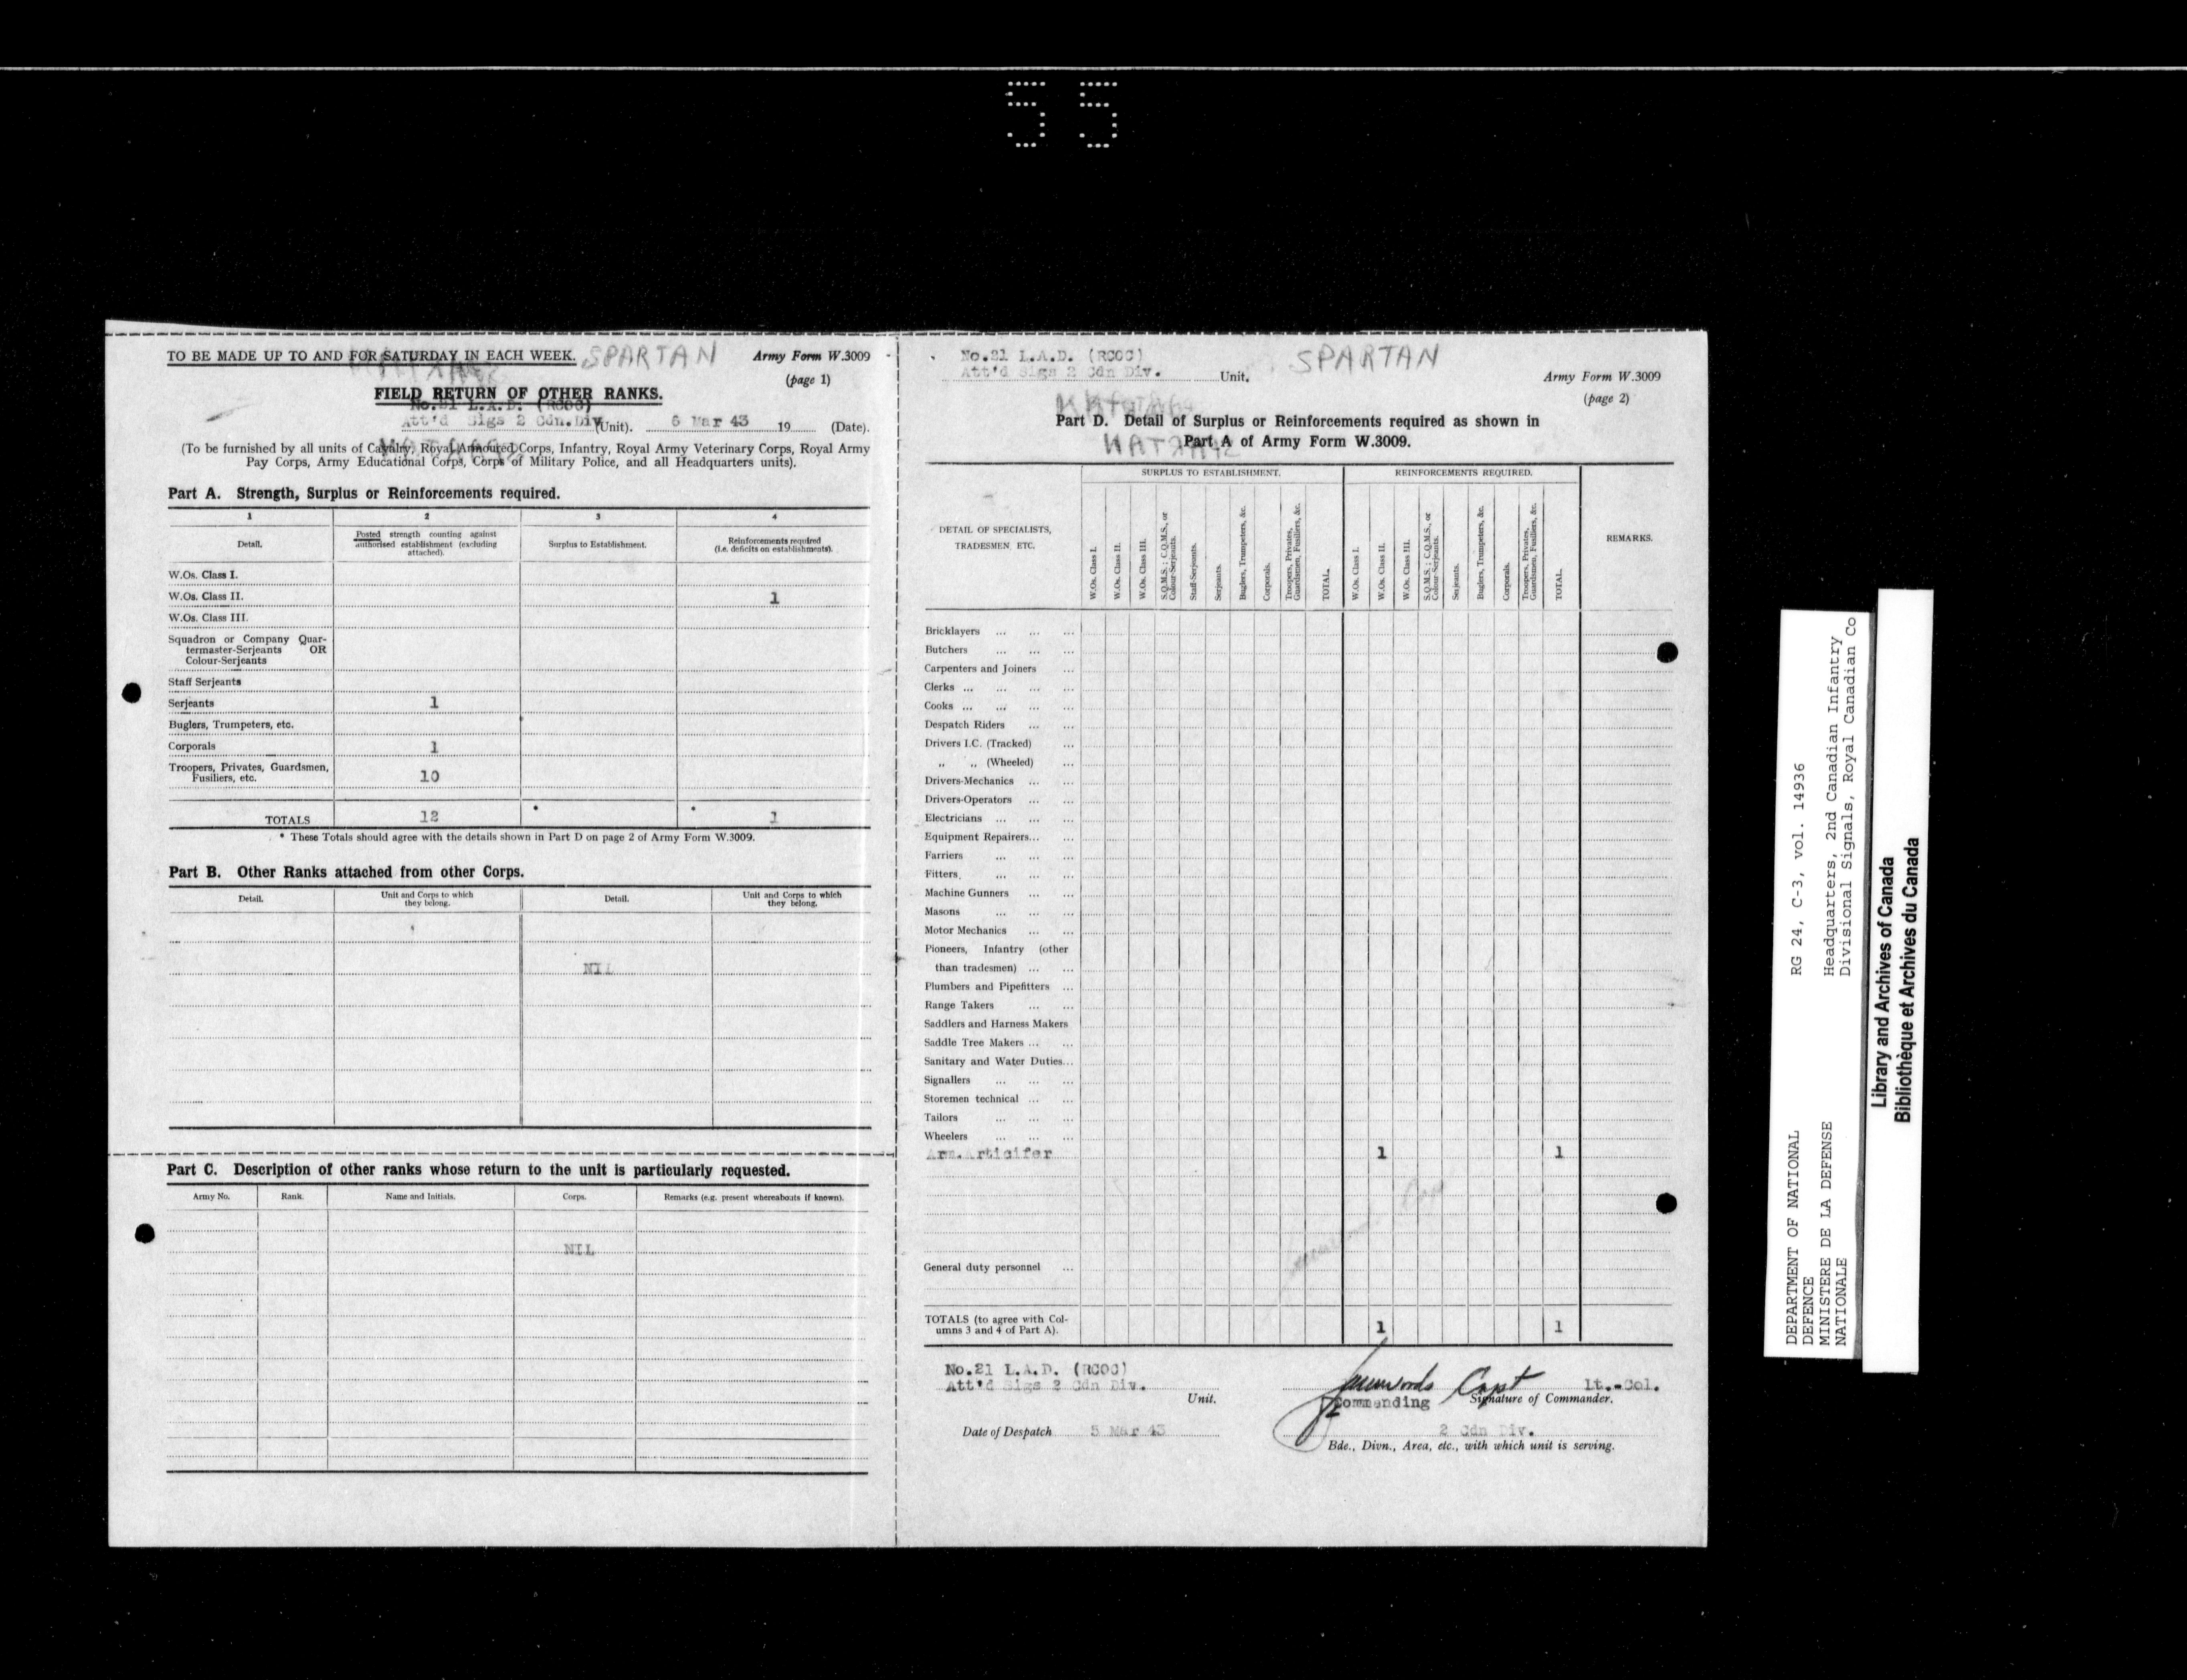 55
TO BE MADE UP TO AND FOR SATURDAY IN EACH WEEK. SPARTAN Army Form W.3009
(page 1)
FIELD RETURN OF OTHER RANKS.
No.21 L.A.D. (RCOC)
Att'd Sigs 2 Cdn.Div (Unit). 6 Mar 43 19 (Date).
(To be furnished by all units of Cavalry, Royal Armoured Corps, Infantry, Royal Army Veterinary Corps, Royal Army
Pay Corps, Army Educational Corps, Corps of Military Police, and all Headquarters units).
Part A. Strength, Surplus or Reinforcements required.
1 2 3 4
Detail. Posted strength counting against authorised establishment (excluding attached). Surplus to Establishment. Reinforcements required (i.e. deficits on establishments).
W.Os. Class I.
W.Os. Class II. 1
W.Os. Class III.
Squadron or Company Quar-
termaster-Serjeants OR
Colour-Serjeants
Staff Serjeants
Serjeants 1
Buglers, Trumpeters, etc.
Corporals 1
Troopers, Privates, Guardsmen,
Fusiliers, etc. 10
TOTALS 12 * * 1
* These Totals should agree with the details shown in Part D on page 2 of Army Form W.3009.
Part B. Other Ranks attached from other Corps.
Detail. Unit and Corps to which they belong. Detail. Unit and Corps to which they belong.
NIL
Part C. Description of other ranks whose return to the unit is particularly requested.
Army No. Rank. Name and Initials. Corps. Remarks (e.g. present whereabouts if known).
NIL
No.21 L.A.D. (RCOC)
Att'd Sigs 2 Cdn Div. Unit. SPARTAN
Army Form W.3009
(page 2)
Part D. Detail of Surplus or Reinforcements required as shown in
Part A of Army Form W.3009.
SURPLUS TO ESTABLISHMENT. REINFORCEMENTS REQUIRED.
DETAIL OF SPECIALISTS,
TRADESMEN, ETC.
W.Os. Class I. W.Os. Class II. W.Os. Class III. S.Q.M.S.; C.Q.M.S., or Colour-Serjeants. Staff-Serjeants. Serjeants. Buglers, Trumpeters, &c. Corporals. Troopers, Privates, Guardsmen, Fusiliers, &c. TOTAL. W.Os. Class I. W.Os. Class II. W.Os. Class III. S.Q.M.S.; C.Q.M.S., or Colour-Serjeants. Serjeants. Buglers, Trumpeters, &c. Corporals. Troopers, Privates, Guardsmen, Fusiliers, &c. TOTAL. REMARKS.
Bricklayers ... ... ...
Butchers ... ... ...
Carpenters and Joiners ...
Clerks ... ... ... ...
Cooks ... ... ... ...
Despatch Riders ... ...
Drivers I.C. (Tracked) ...
„ „ (Wheeled) ...
Drivers-Mechanics ... ...
Drivers-Operators ... ...
Electricians ... ... ...
Equipment Repairers... ...
Farriers ... ... ...
Fitters. ... ... ...
Machine Gunners ... ...
Masons ... ... ...
Motor Mechanics ... ...
Pioneers, Infantry (other
than tradesmen) ... ...
Plumbers and Pipefitters ...
Range Takers ... ...
Saddlers and Harness Makers
Saddle Tree Makers ... ...
Sanitary and Water Duties...
Signallers ... ... ...
Storemen technical ... ...
Tailors ... ... ...
Wheelers ... ... ...
Arm.Articifer 1 1
General duty personnel ...
TOTALS (to agree with Col-
umns 3 and 4 of Part A). 1 1
No.21 L.A.D. (RCOC)
Att'd Sigs 2 Cdn Div.
Unit.
Capt Lt.-Col.
Commanding Signature of Commander.
Date of Despatch 5 Mar 43
2 Cdn Div.
Bde., Divn., Area, etc., with which unit is serving.
DEPARTMENT OF NATIONAL RG 24, C-3, vol. 14936
DEFENCE
MINISTERE DE LA DEFENSE Headquarters, 2nd Canadian Infantry
NATIONALE Divisional Signals, Royal Canadian Co
Library and Archives of Canada
Bibliothèque et Archives du Canada